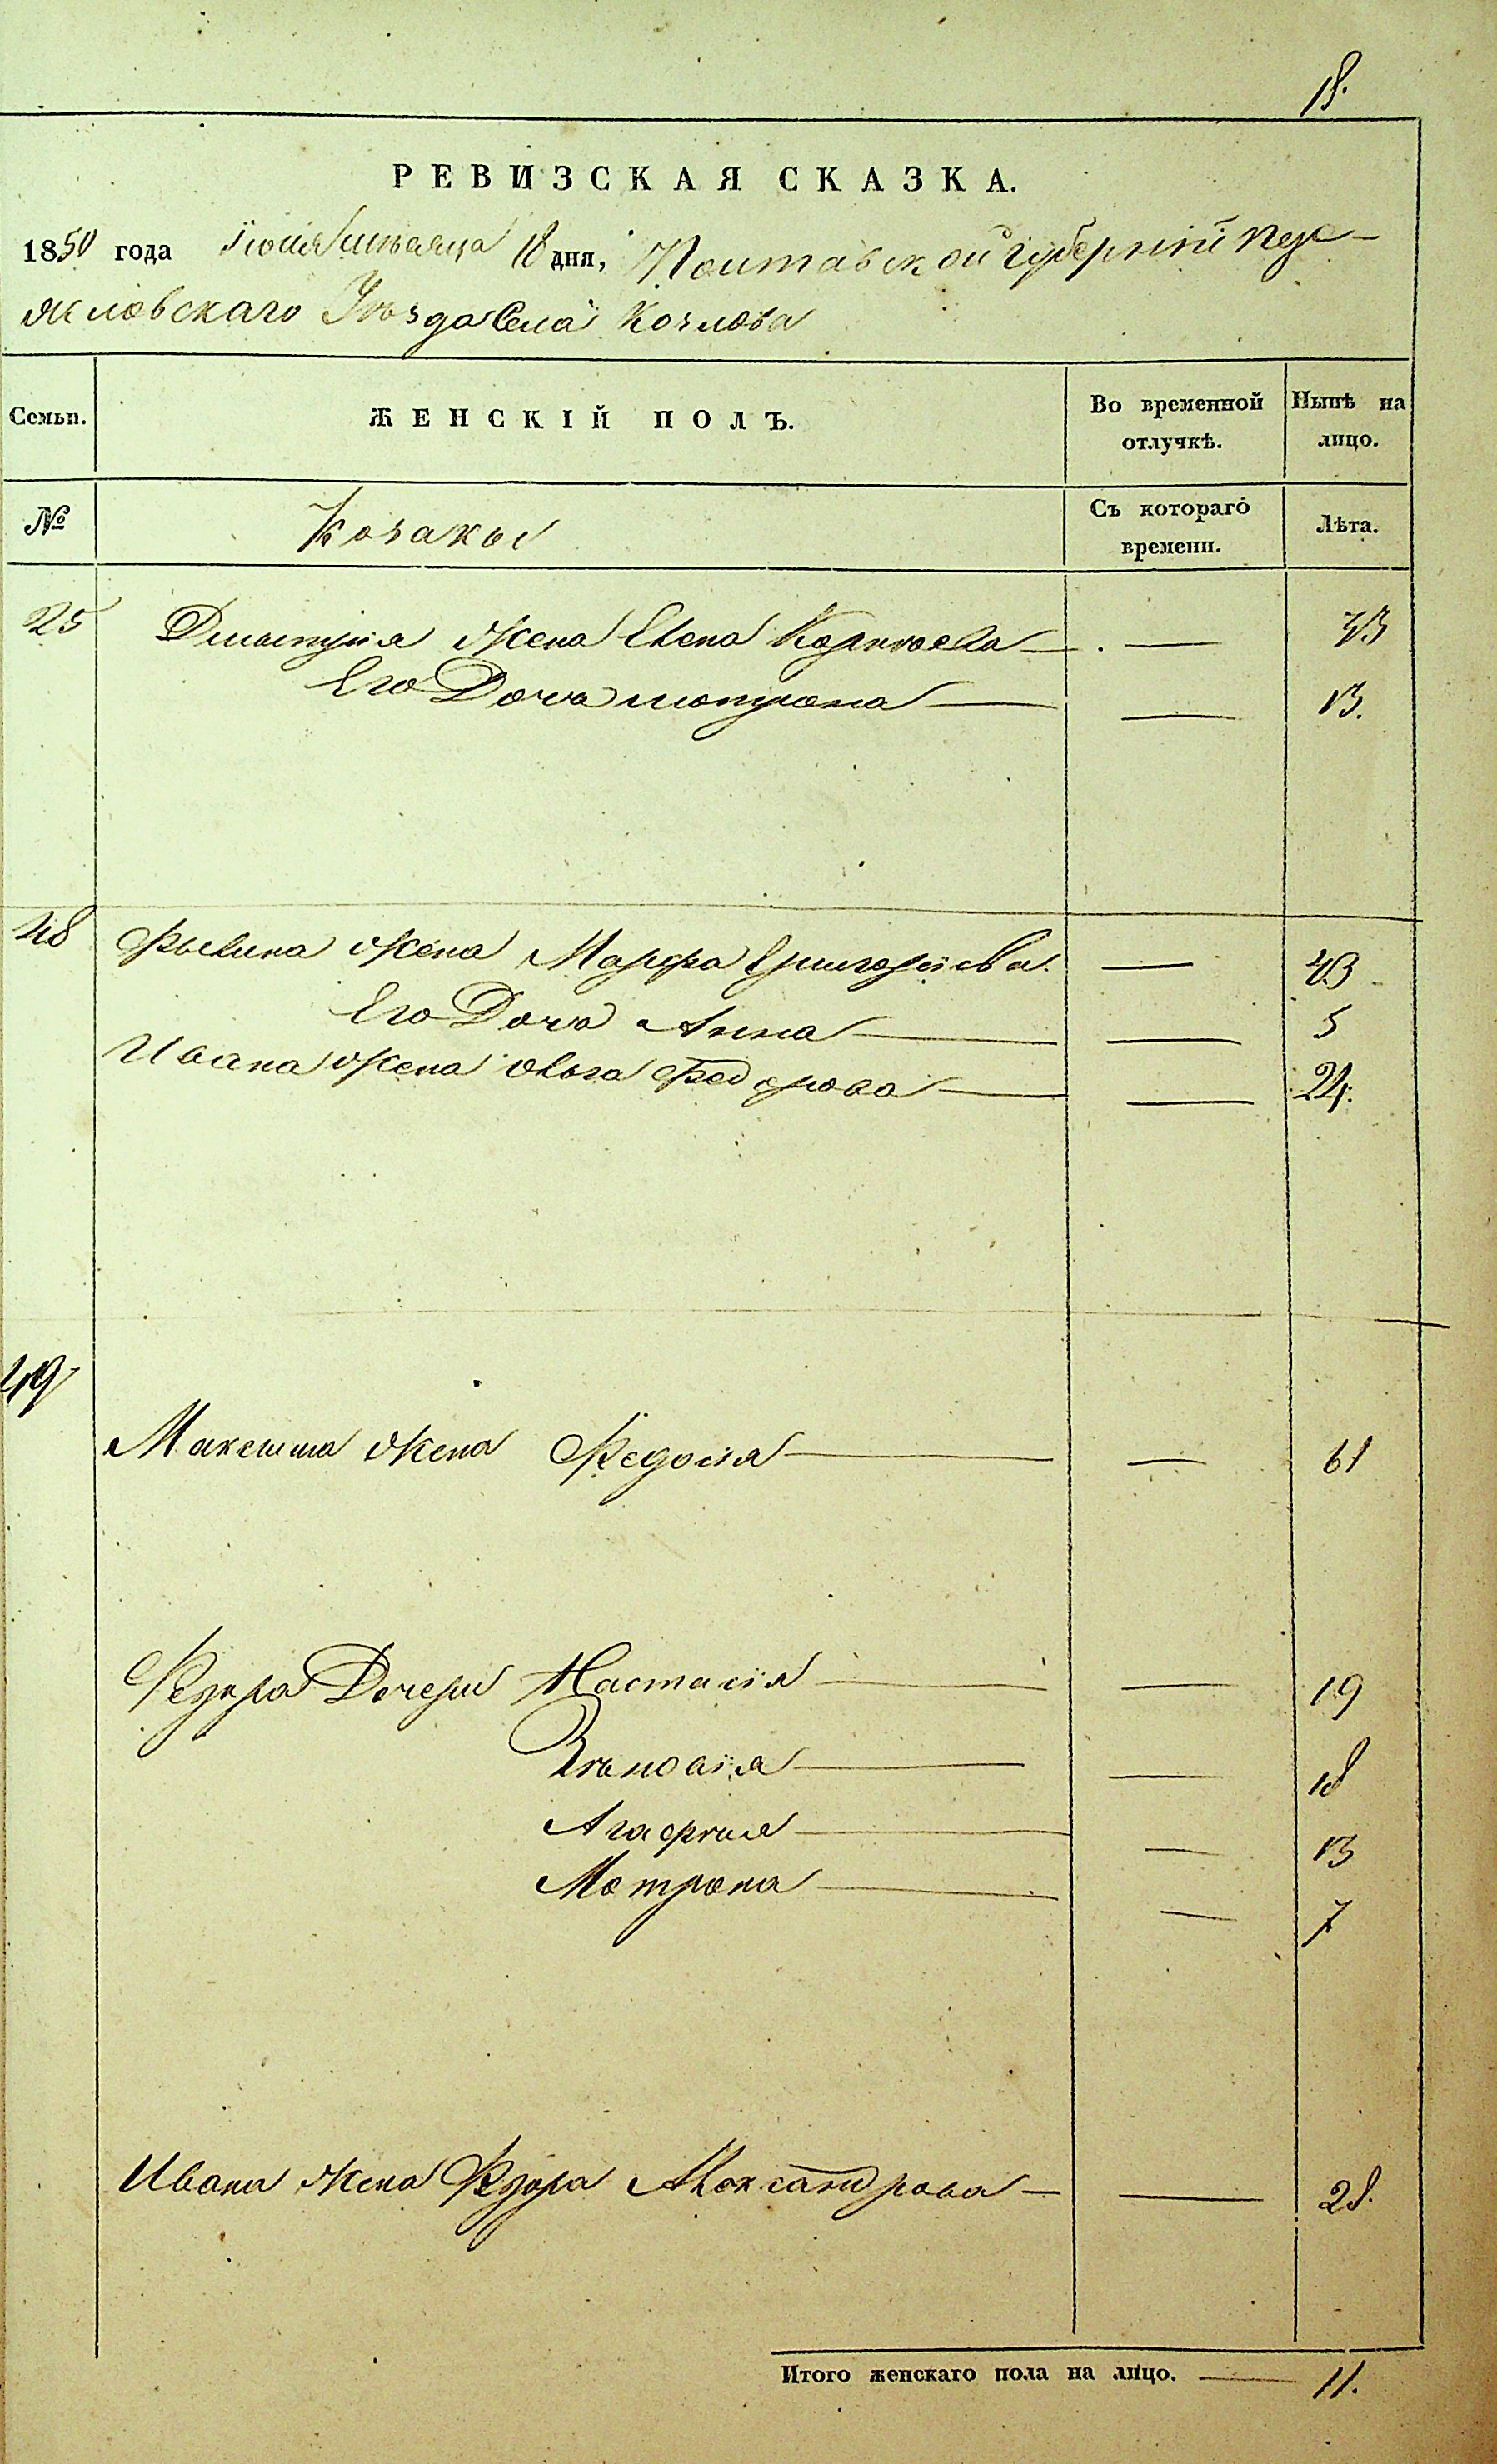 18.
РЕВИЗСКАЯ СКАЗКА.
1850 года Іюля мѣсяца 18 дня, Полтавской губерніи Пере-
яславскаго Уѣзда Села Козлова
Семьи. ЖЕНСКІЙ ПОЛЪ. Во временной отлучкѣ. Нынѣ на лицо.
№ Козаки Съ котораго времени. Лѣта.
25 Дмитрія жена Елена Корнѣева — — 43
Его Дочь мотрона — — 13.
48 жена Марфа Григоріева. — 43
Его Дочь Анна — — 5
Ивана жена Ольга Федорова — — 24.
49
Максима жена Федосія — — 61
Федора Дочери Настасія — — 19
Зѣновія — — 18
Агафія — — 13
Мотрона — — 7
Ивана жена Александрова — — 28.
Итого женскаго пола на лицо. — 11.